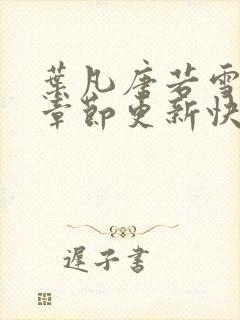 葉凡唐若雪
章節更新快
遲子書